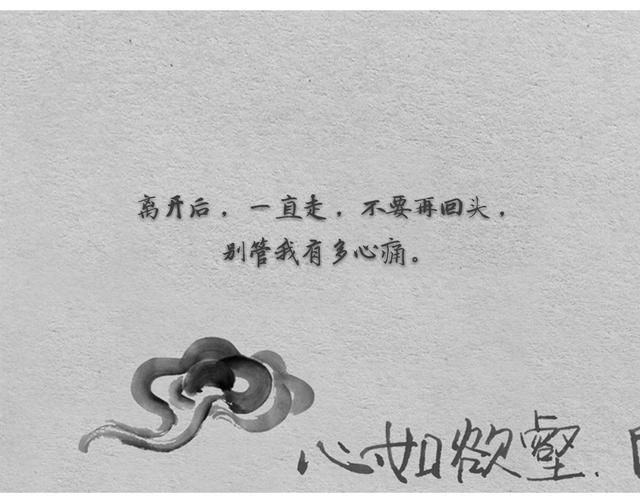 离开后，一直走，不要再回头，
别管我有多心痛。
心如欲壑.